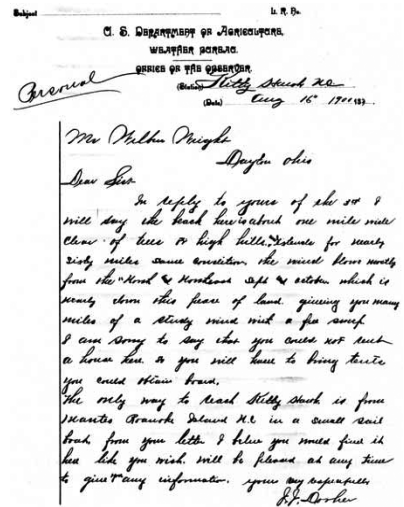 Subject
L. R. No.
U. S. DEPARTMENT OF AGRICULTURE,
WEATHER BUREAU.
OFFICE OF THE OBSERVER.
Personal
(Station) Kitty Hawk N.C
(Date) Aug 16" 1900 187
Mr Wilbur Wright
Dayton Ohio
Dear Sir
In reply to yours of the 3rd I
will say the beach here is about one mile wide
clear of trees or high hills, & extends for nearly
sixty miles same condition. the wind blows mostly
from the North & Northeast Sept & october which is
nearly down this peace of land. giveing you many
miles of a study wind with a free sweep
I am sorry to say that you could not rent
a house here. so you will have to bring tents
you could obtain board.
The only way to reach Kitty Hawk is from
Manteo Roanoke Island N.C in a small sail
boat from your letter I believe you would find it
here like you wish. will be pleased at any time
to give you any information. yours very respectfully
J.J. Dosher